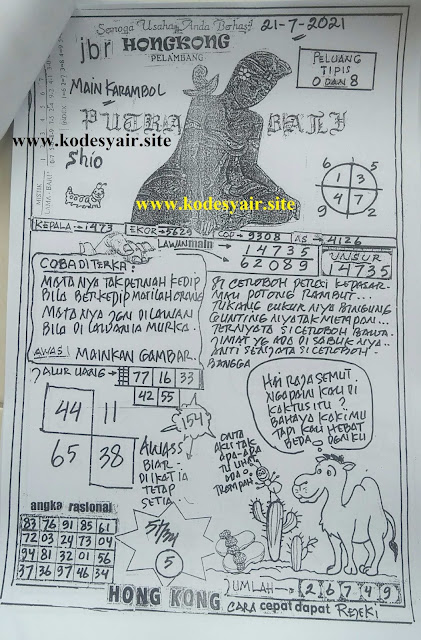 Semoga Usaha Anda Berhasil
21-7-2021
jbr HONGKONG
PELAMBANG
PELUANG
TIPIS
0 DAN 8
MAIN KARAMBOL
PUTRA BALI
www.kodesyair.site
Shio
www.kodesyair.site
6 8
1 3
4 7
9 2
KEPALA→1473 EKOR→5629 COP→9308 AS→4126
LAWAN main
14735
62089
UNSUR
14735
COBA DI TERKA:
MATA NYA TAK PERNAH KEDIP
BILA BERKEDIP MATILAH ORANG
MATA NYA JGN DI LAWAN
BILA DI LAWAN IA MURKA.
AWAS! MAINKAN GAMBAR.
SI CEROBOH PERGI KEPASAR.
MAU POTONG RAMBUT...
TUKANG CUKUR NYA BINGUNG
GUNTING NYA TAK MEMPAN...
TERNYATA SI CEROBOH BAWA.
JIMAT YG ADA DI SABUK NYA..
ANTI SENJATA SI CEROBOH.
BANGGA
? ALUR UANG→
77 16 33
42 55
44 11
65 38
154
AWASS
BIAR
DI KATIA
TETAP
SETIA
ONTA
AKU TAK
APA-APA
TU LIHAT
ADA
TROMPAH
HAI RAJA SEMUT.
NGAPAIN KAU DI
KAKTUS ITU ?
BAHAYA KAKIMU
TAPI KAU HEBAT
BEDA DGN KU
angka rasional
83 76 91 85 61
72 03 24 73 04
94 81 32 01 56
37 36 97 46 34
5
HONG KONG
JUMLAH→ 2 6 7 4 9
CARA cepat dapat REJEKI